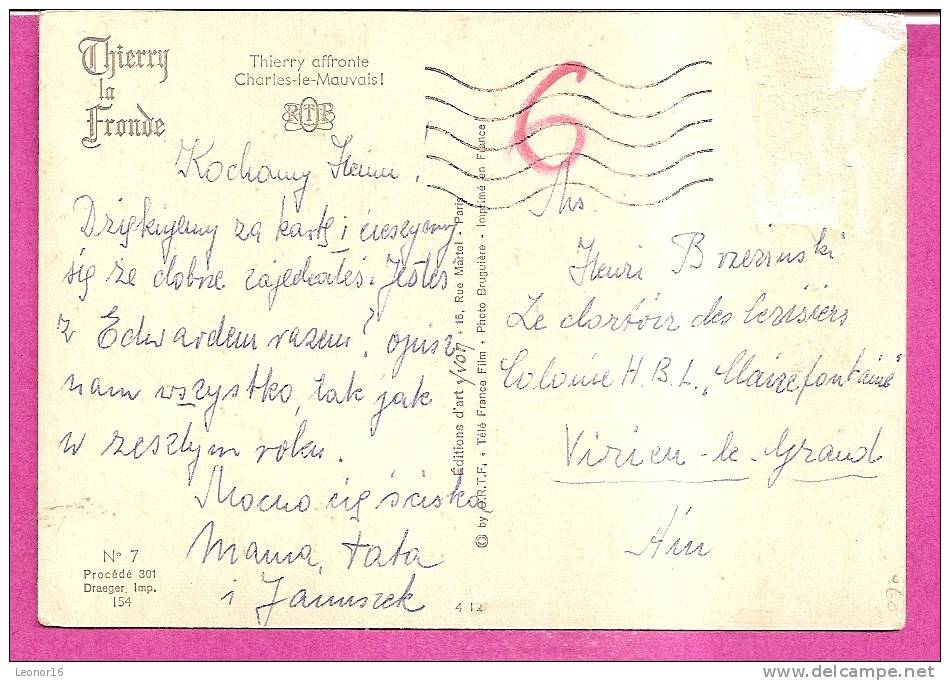 Thierry
la
Fronde
Thierry affronte
Charles-le-Mauvais!
RTF
6
Kochany Heniu,
Dziękujemy za kartę i cieszymy
się że dobrze zajechałeś. Jesteś
z Edwardem razem? opisz
nam wszystko, tak jak
w zeszłym roku.
Mocno cię ściska
Mama, tata
i Januszek
N° 7
Procédé 301
Draeger. Imp.
154
Éditions d'art YVON + 15, Rue Martel, Paris
© by O.R.T.F. + Télé France Film + Photo Bruguière - Imprimé en France
4 12
Henri Brzezinski
Le dortoir des Cerisiers
Colonie H.B.L. „Clairefontaine"
Virieu-le-Grand
Ain
Leonor16
www.delcampe.net